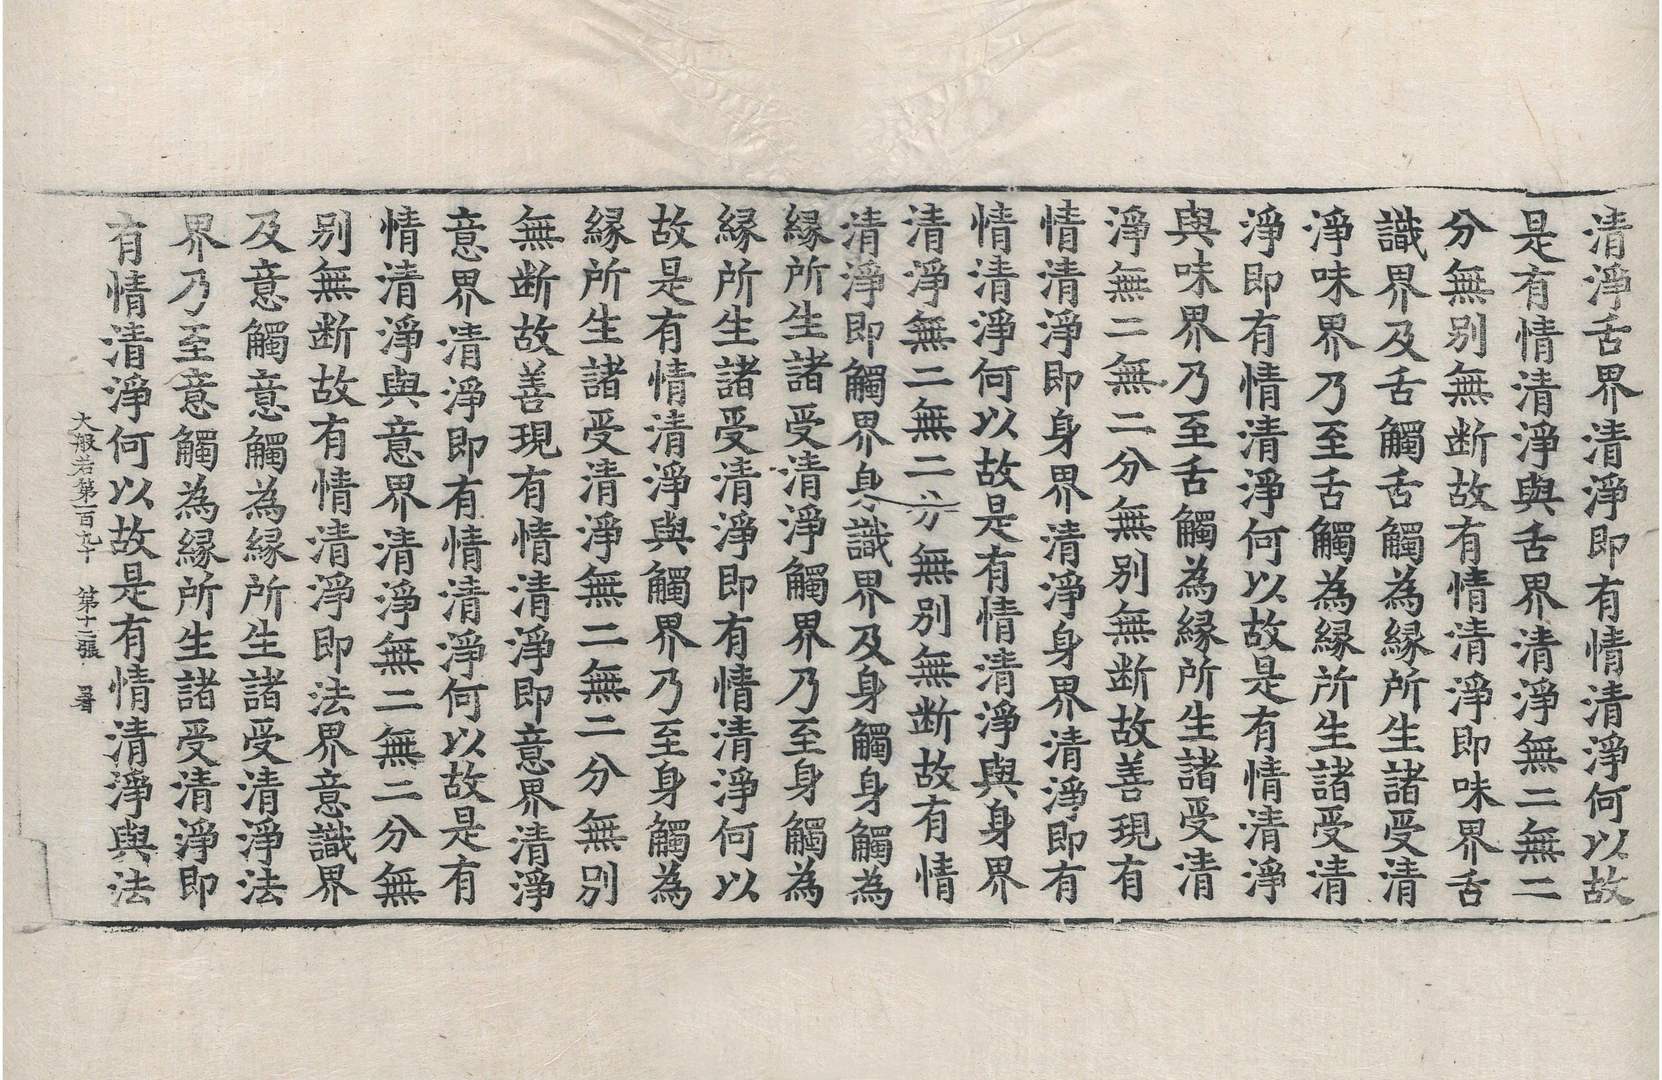 清淨舌界清淨即有情清淨何以故
是有情清淨與舌界清淨無二無二
分無別無断故有情清淨即味界舌
識界及舌觸舌觸為縁所生諸受清
淨味界乃至舌觸為縁所生諸受清
淨即有情清淨何以故是有情清淨
與味界乃至舌觸為縁所生諸受清
淨無二無二分無別無断故善現有
情清淨即身界清淨身界清淨即有
情清淨何以故是有情清淨與身界
清淨無二無二分無別無断故有情
清淨即觸界身識界及身觸身觸為
縁所生諸受清淨觸界乃至身觸為
縁所生諸受清淨即有情清淨何以
故是有情清淨與觸界乃至身觸為
縁所生諸受清淨無二無二分無別
無断故善現有情清淨即意界清淨
意界清淨即有情清淨何以故是有
情清淨與意界清淨無二無二分無
別無断故有情清淨即法界意識界
及意觸意觸為縁所生諸受清淨法
界乃至意觸為縁所生諸受清淨即
有情清淨何以故是有情清淨與法
大般若第一百九十 第十二張 署